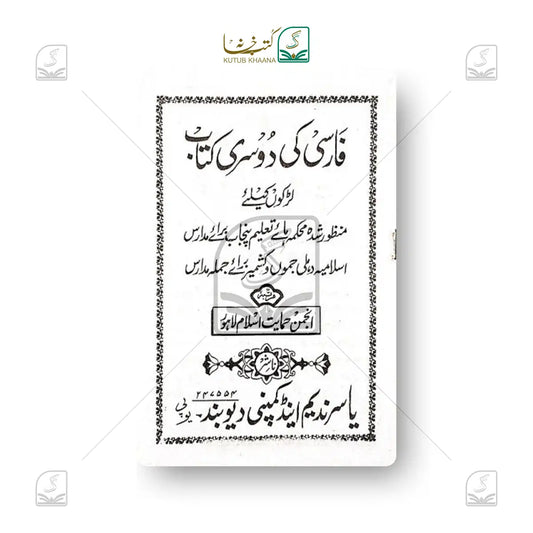 کتب خانہ
KUTUB KHAANA
فارسی کی دوسری کتاب
لڑکوں کیلئے
منظور شدہ محکمہ ہائے تعلیم پنجاب برائے مدارس
اسلامیہ دہلی جموں و کشمیر برائے جملہ مدارس
انجمن حمایت اسلام لاہور
ناشر
یاسر ندیم اینڈ کمپنی دیوبند ۲۴۷۵۵۴ یوپی